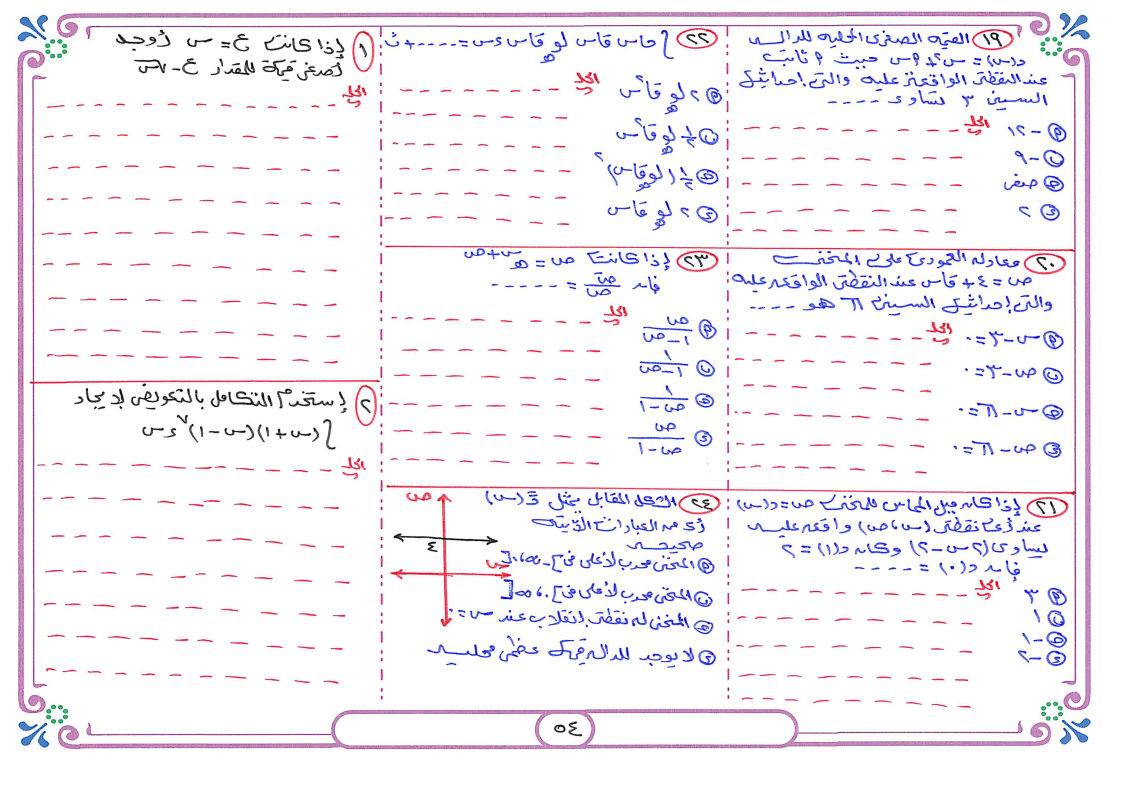 ١٩ القيمة الصغرى المحلية للدالة
د(س) = س² + ٢ س حيث ٢ ثابت
عند النقطة الواقعة عليه والتى إحداثيها
السينى ٣ تساوى ----
الحل
٢ -١٢
ب -٩
ج صفر
د ٢
٢٠ معادلة العمودى على المنحنى
ص = ٤ + قاس عند النقطة الواقعة عليه
والتى إحداثيها السينى π هو ----
الحل
٢ س - ٣ = ٠
ب ص - ٣ = ٠
ج س - π = ٠
د ص - π = ٠
٢١ إذا كان ميل المماس للمنحنى ص = د(س)
عند أى نقطة (س، ص) واقعة عليه
يساوى (٢س - ٢) وكان د(١) = ٢
فإن د(٠) = ----
الحل
٢ ٣
ب ١
ج -١
د -٢
٢٢ ∫ طاس قاس لو قاس ءس = ---- + ث
هـ
الحل
٢ ٢ لو قاس
ب ½ لو قاس
ج ½ (لو قاس)²
د ٢ لو قاس
٢٣ إذا كانت ص = هـ^(س+ص)
فإن ص َ / ص = -----
الحل
٢ ص / ١ - ص
ب ١ / ١ - ص
ج ١ / ص - ١
د ص / ص - ١
٢٤ الشكل المقابل يمثل د َ(س)
أى من العبارات الآتية
صحيحة
٢ المنحنى محدب لأعلى فى ]-∞، ٠[
ب المنحنى محدب لأعلى فى ]٠، ∞[
ج المنحنى له نقطة إنقلاب عند س = ٠
د لا يوجد للدالة قيمة عظمى محلية
ص
٤
س
١ إذا كانت ع = س أوجد
أصغر قيمة للمقدار ع - √س
الحل
٢ إستخدم التكامل بالتعويض لإيجاد
∫ (س + ١)(س - ١)^٧ ءس
الحل
٥٤